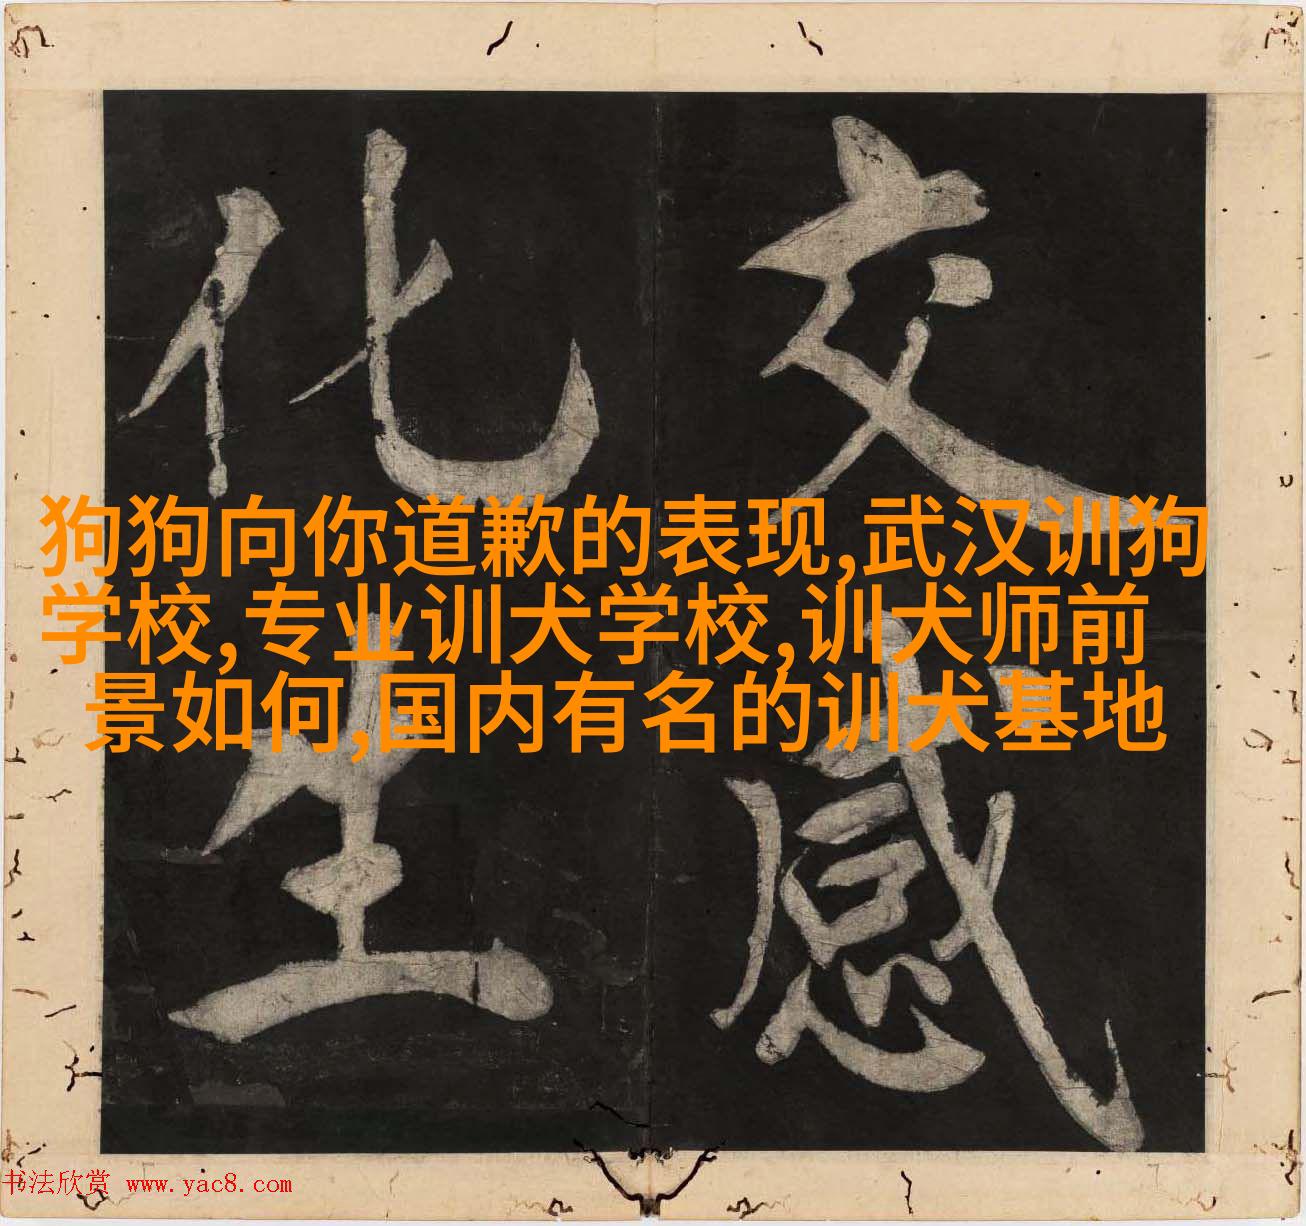 交感
化生
狗狗向你道歉的表现,武汉训狗
学校,专业训犬学校,训犬师前
景如何,国内有名的训犬基地
书法欣赏 www.yac8.com